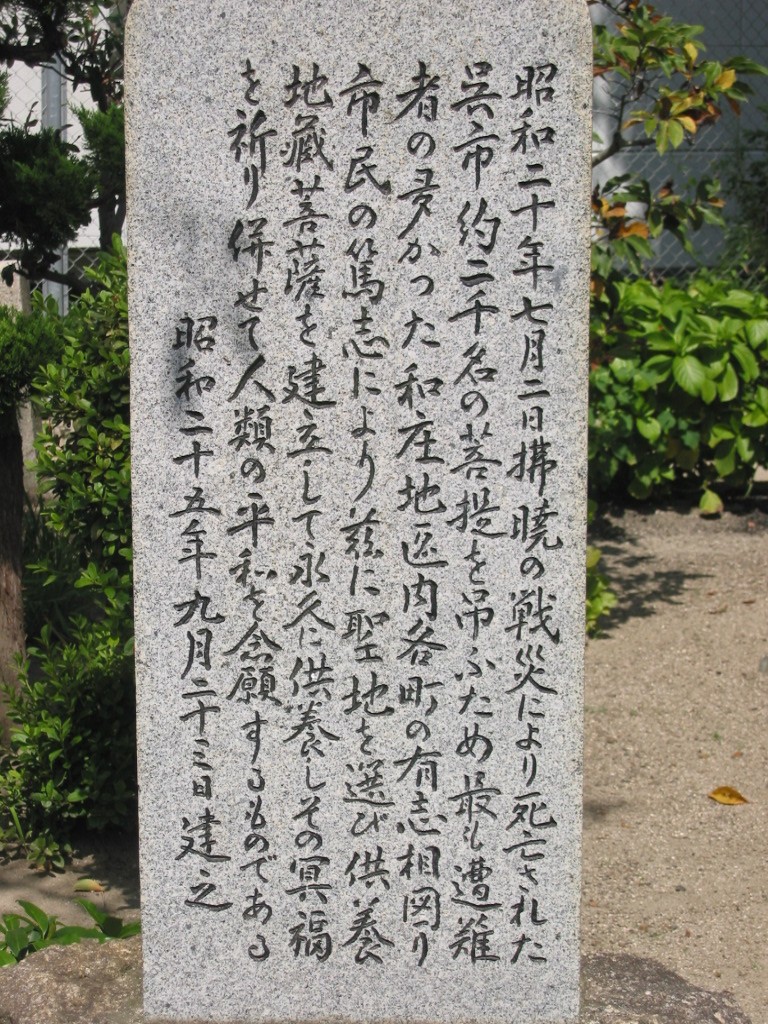 昭和二十年七月二日拂暁の戦災により死亡された
呉市約二千名の菩提を吊ふため最も遭難
者の多かった和庄地区内各町の有志相図り
市民の篤志により茲に聖地を選び供養
地蔵菩薩を建立して永久に供養しその冥福
を祈り併せて人類の平和を念願するものである
昭和二十五年九月二十三日建之